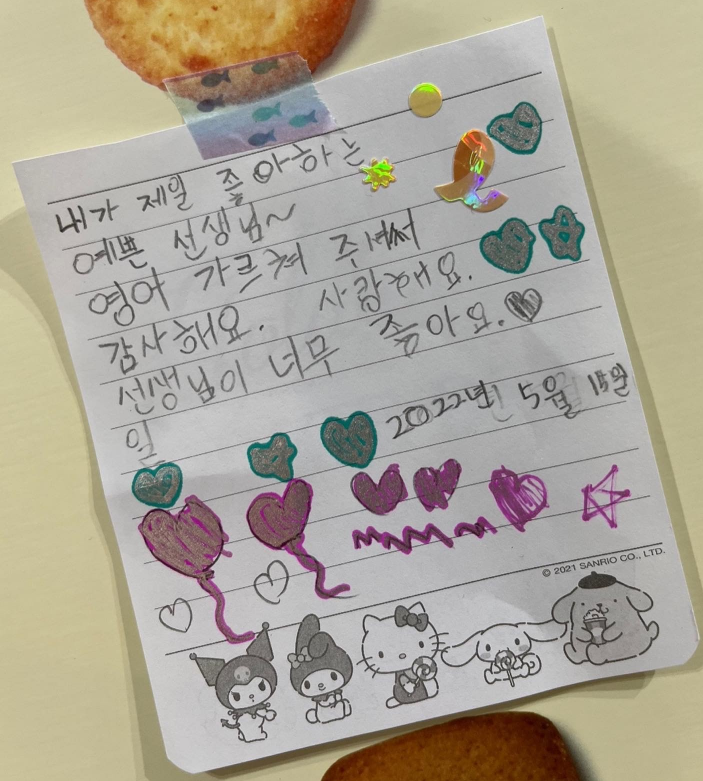 내가 제일 좋아하는
예쁜 선생님~
영어 가르쳐 주셔서
감사해요. 사랑해요.
선생님이 너무 좋아요.
2022년 5월 15일
일
© 2021 SANRIO CO., LTD.